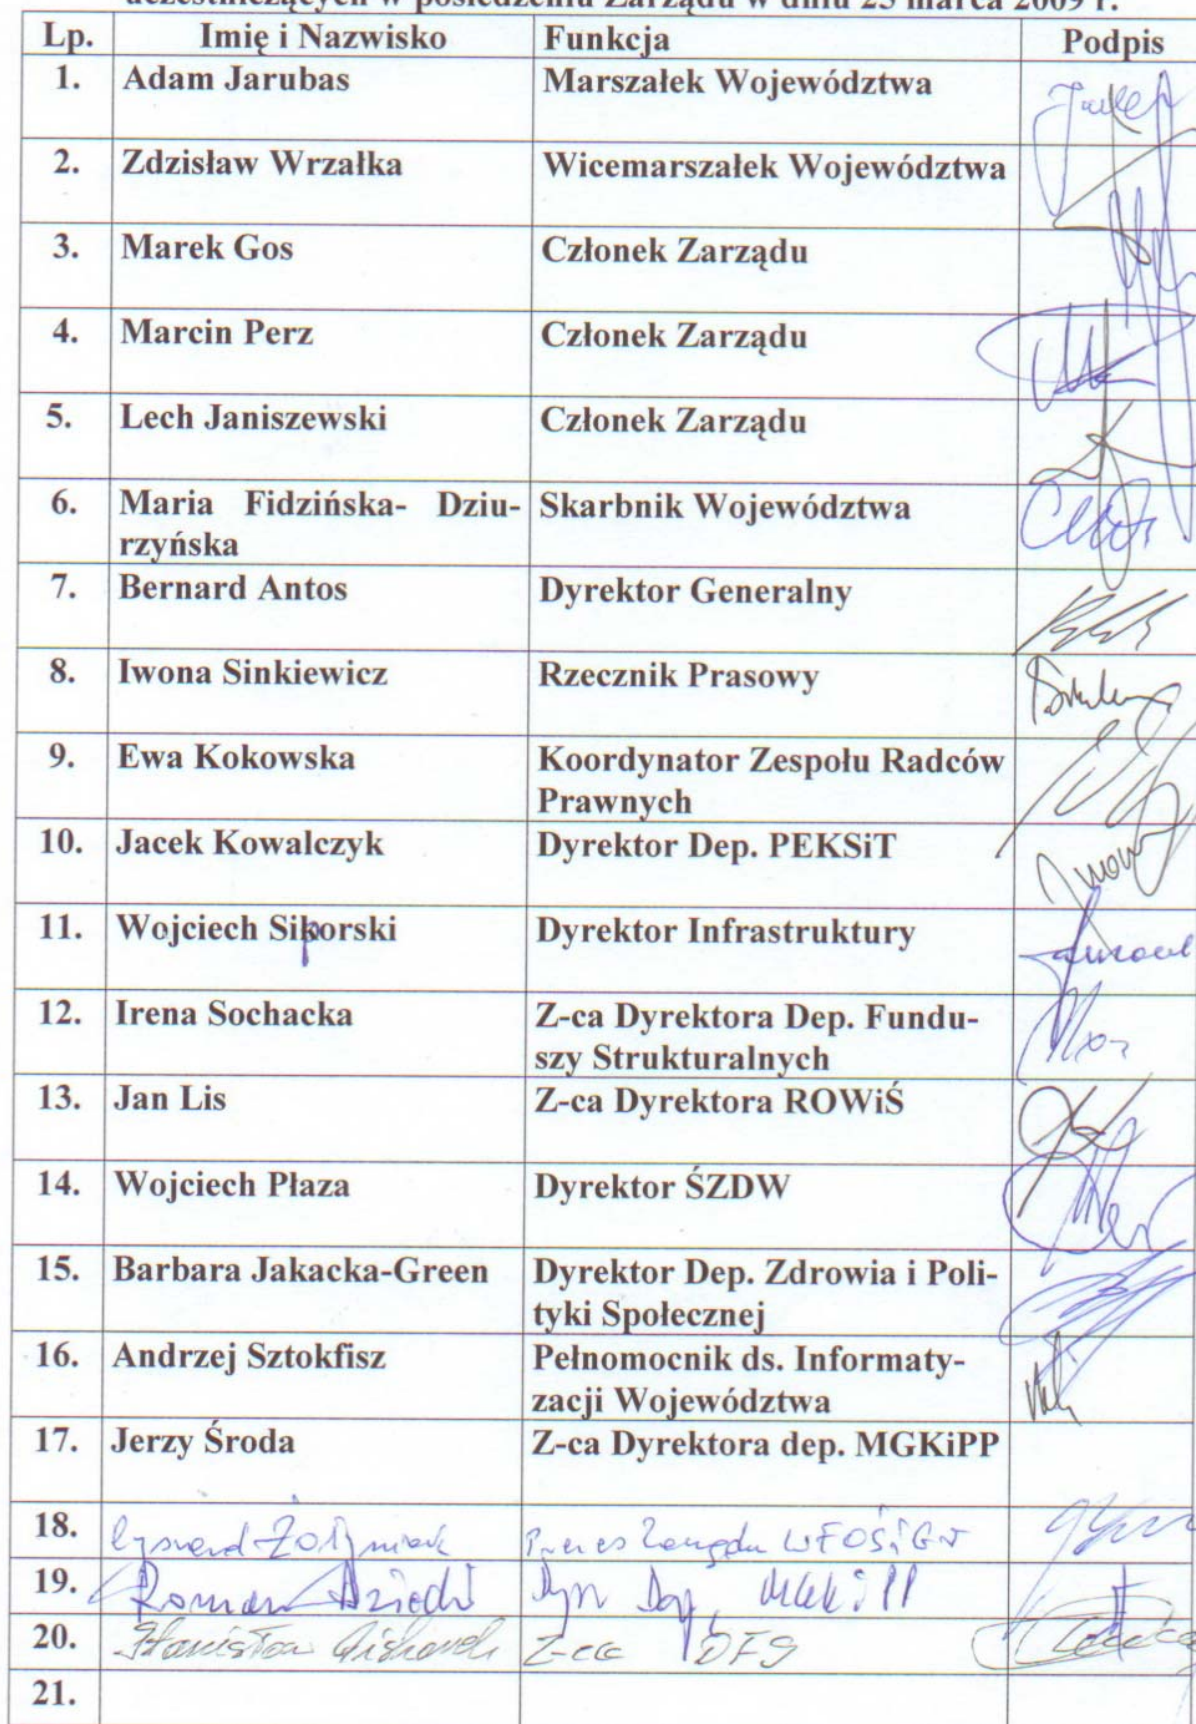 uczestniczących w posiedzeniu Zarządu w dniu 25 marca 2009 r.
Lp. Imię i Nazwisko Funkcja Podpis
1. Adam Jarubas Marszałek Województwa
2. Zdzisław Wrzałka Wicemarszałek Województwa
3. Marek Gos Członek Zarządu
4. Marcin Perz Członek Zarządu
5. Lech Janiszewski Członek Zarządu
6. Maria Fidzińska- Dziu- Skarbnik Województwa
rzyńska
7. Bernard Antos Dyrektor Generalny
8. Iwona Sinkiewicz Rzecznik Prasowy
9. Ewa Kokowska Koordynator Zespołu Radców
Prawnych
10. Jacek Kowalczyk Dyrektor Dep. PEKSiT
11. Wojciech Sikorski Dyrektor Infrastruktury
12. Irena Sochacka Z-ca Dyrektora Dep. Fundu-
szy Strukturalnych
13. Jan Lis Z-ca Dyrektora ROWiŚ
14. Wojciech Płaza Dyrektor ŚZDW
15. Barbara Jakacka-Green Dyrektor Dep. Zdrowia i Poli-
tyki Społecznej
16. Andrzej Sztokfisz Pełnomocnik ds. Informaty-
zacji Województwa
17. Jerzy Środa Z-ca Dyrektora dep. MGKiPP
18. Prezes Zarządu WFOŚiGW
19. Roman Dyr Dep. MGKiPP
20. Stanisław Z-ca DFS
21.